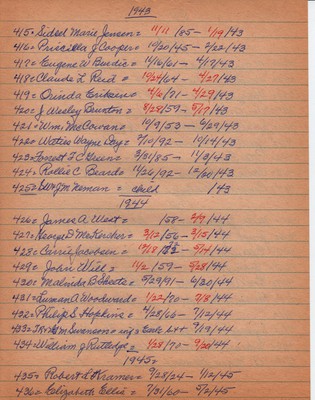 1943
415 = Sidsel Marie Jensen = 11/11/85 - 1/19/43
416 = Priscilla J Cooper = 10/20/45 - 2/22/43
417 = Eugene W Burdic = 11/16/61 - 4/17/43
418 = Claude L Reed = 1/24/64 - 4/27/43
419 = Orinda Erickson = 4/6/71 - 4/29/43
420 = J Wesley Burton = 8/28/59 - 5/17/43
421 = Wm. McCowan = 10/9/53 - 6/29/43
422 = Wayne Day = 7/10/92 - 10/14/43
423 = Forrest T Green = 3/31/85 - 11/3/43
424 = Rollie C Beard = 11/26/92 - 12/00/43
425 = J M Neman = child /43
1944
426 = James A West = /58 - 2/9/44
427 = George D McKercher = 3/12/56 - 3/15/44
428 = Carrie Jacobsen = 10/18/83 - 5/14/44
429 = John Will = 11/2/59 - 5/28/44
430 = Malinda B Skeete = 5/29/91 - 6/30/44
431 = Luman A Woodward = 1/22/70 - 7/8/44
432 = Philip S Hopkins = 4/28/66 - 7/12/44
433 = M Swenson = 9/19/44
434 = William J Rutledge = 1/28/70 - 9/20/44
1945
435 = Robert S Kramer = 9/28/24 - 1/12/45
436 = Elizabeth Ellis = 7/31/60 - 5/2/45